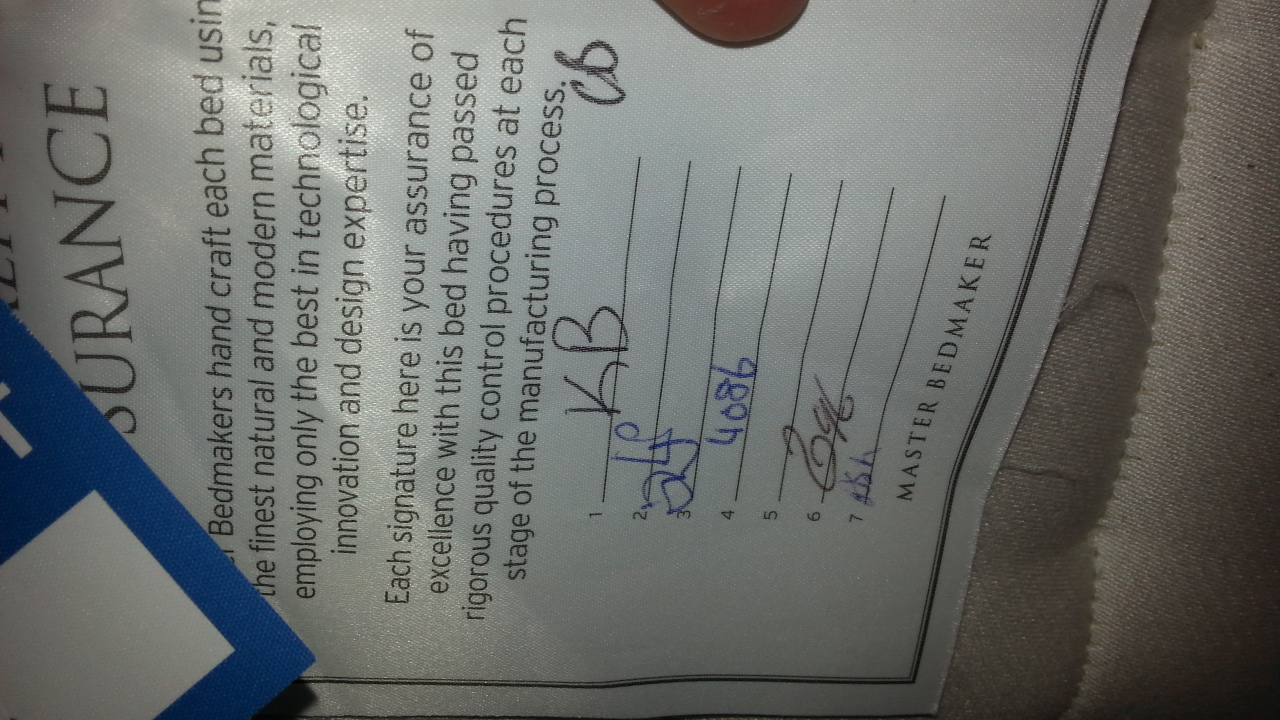 SURANCE
Bedmakers hand craft each bed usin
the finest natural and modern materials,
employing only the best in technological
innovation and design expertise.
Each signature here is your assurance of
excellence with this bed having passed
rigorous quality control procedures at each
stage of the manufacturing process.
1 KB CB
2
3
4 4086
5
6
7
MASTER BEDMAKER